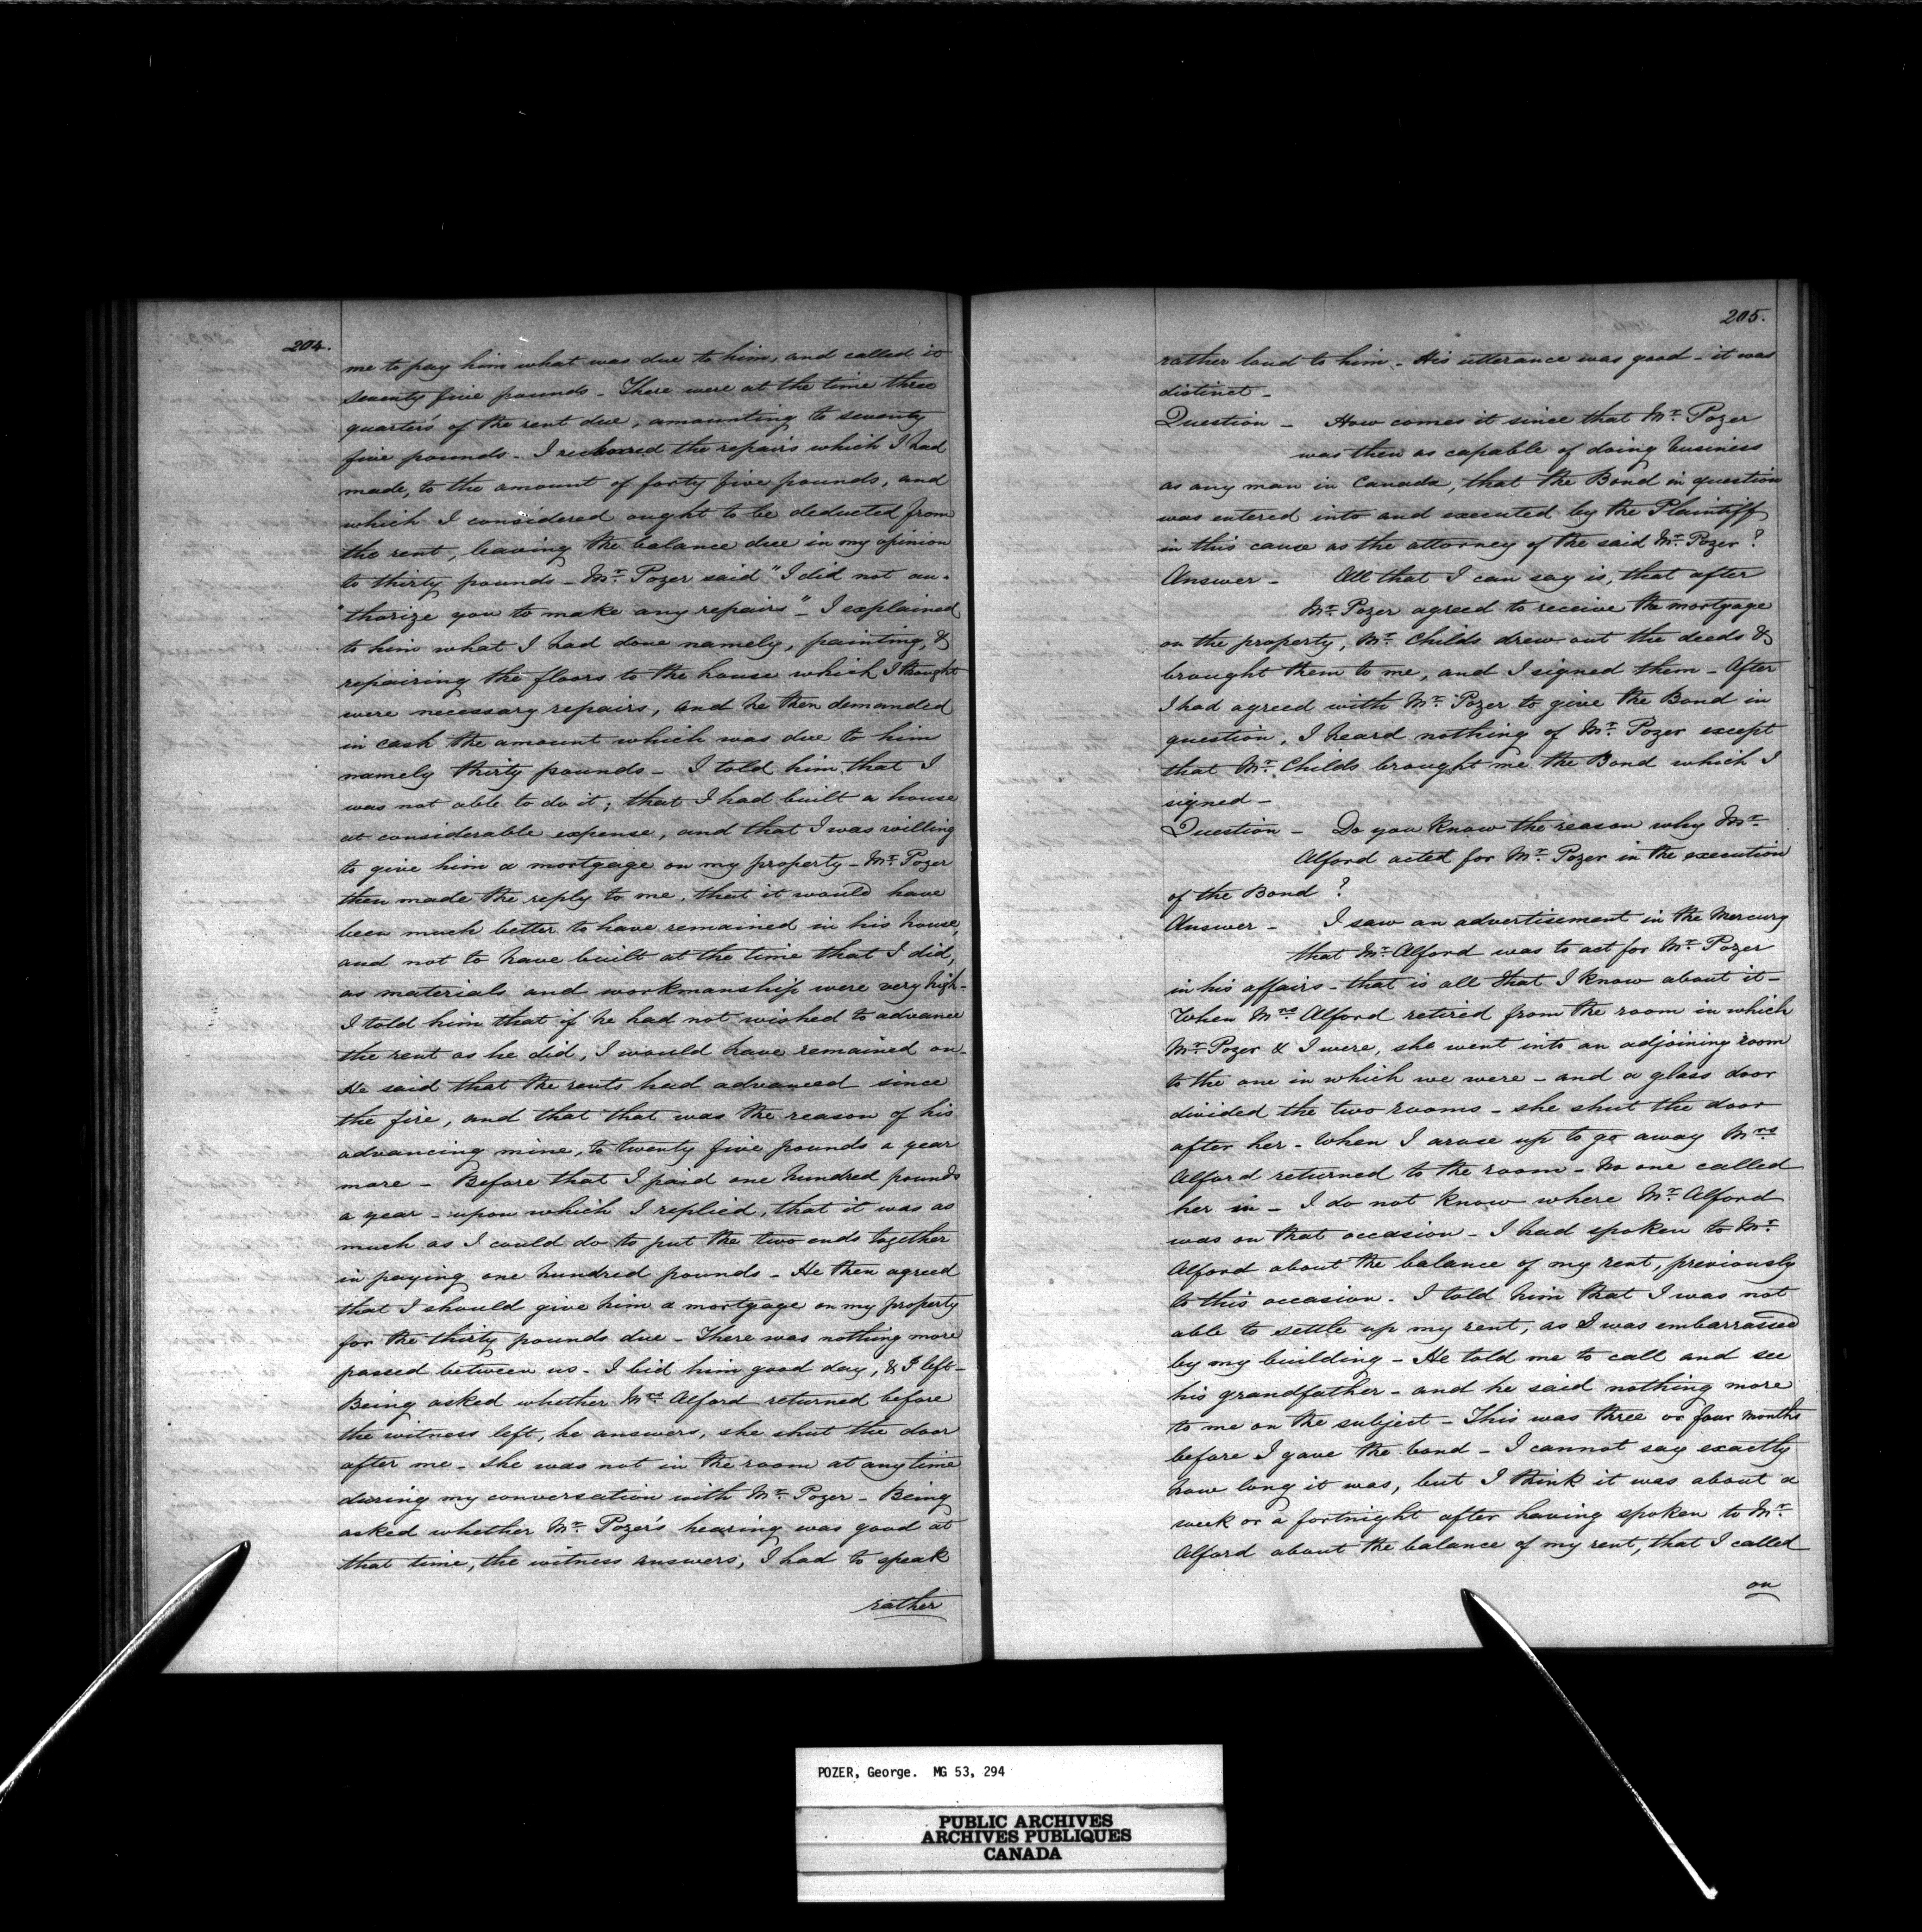 204.
me to pay him what was due to him, and called it
seventy five pounds - There were at the time three
quarters' of the rent due, amounting to seventy
five pounds - I reckoned the repairs which I had
made, to the amount of forty five pounds, and
which I considered ought to be deducted from
the rent, leaving the balance due in my opinion
to thirty pounds - Mr. Pozer said "I did not au-
"thorize you to make any repairs" - I explained
to him what I had done namely, painting, &
repairing the floors to the house which I thought
were necessary repairs, and he then demanded
in cash the amount which was due to him
namely thirty pounds - I told him that I
was not able to do it; that I had built a house
at considerable expense, and that I was willing
to give him a mortgage on my property - Mr. Pozer
then made the reply to me, that it would have
been much better to have remained in his house,
and not to have built at the time that I did,
as materials and workmanship were very high -
I told him that if he had not wished to advance
the rent as he did, I would have remained on -
He said that the rents had advanced since
the fire, and that that was the reason of his
advancing mine, to twenty five pounds a year
more - Before that I paid one hundred pounds
a year - upon which I replied, that it was as
much as I could do to put the two ends together
in paying one hundred pounds - He then agreed
that I should give him a mortgage on my property
for the thirty pounds due - There was nothing more
passed between us - I bid him good day, & I left -
Being asked whether Mrs. Alford returned before
the witness left, he answers, she shut the door
after me - she was not in the room at any time
during my conversation with Mr. Pozer - Being
asked whether Mr. Pozer's hearing was good at
that time, the witness answers, I had to speak
rather
205.
rather loud to him - His utterance was good - it was
distinct -
Question - How comes it since that Mr. Pozer
was then as capable of doing business
as any man in Canada, that the Bond in question
was entered into and executed by the Plaintiff
in this cause as the attorney of the said Mr. Pozer?
Answer - All that I can say is, that after
Mr. Pozer agreed to receive the mortgage
on the property, Mr. Childs drew out the deeds &
brought them to me, and I signed them - After
I had agreed with Mr. Pozer to give the Bond in
question, I heard nothing of Mr. Pozer except
that Mr. Childs brought me the Bond which I
signed -
Question - Do you know the reason why Mr.
Alford acted for Mr. Pozer in the execution
of the Bond?
Answer - I saw an advertisement in the Mercury
that Mr. Alford was to act for Mr. Pozer
in his affairs - that is all that I know about it -
When Mrs. Alford retired from the room in which
Mr. Pozer & I were, she went into an adjoining room
to the one in which we were - and a glass door
divided the two rooms - she shut the door
after her - When I arose up to go away Mrs.
Alford returned to the room - No one called
her in - I do not know where Mr. Alford
was on that occasion - I had spoken to Mr.
Alford about the balance of my rent, previously
to this occasion - I told him that I was not
able to settle up my rent, as I was embarrassed
by my building - He told me to call and see
his grandfather - and he said nothing more
to me on the subject - This was three or four months
before I gave the bond - I cannot say exactly
how long it was, but I think it was about a
week or a fortnight after having spoken to Mr.
Alford about the balance of my rent, that I called
on
POZER, George. MG 53, 294
PUBLIC ARCHIVES
ARCHIVES PUBLIQUES
CANADA